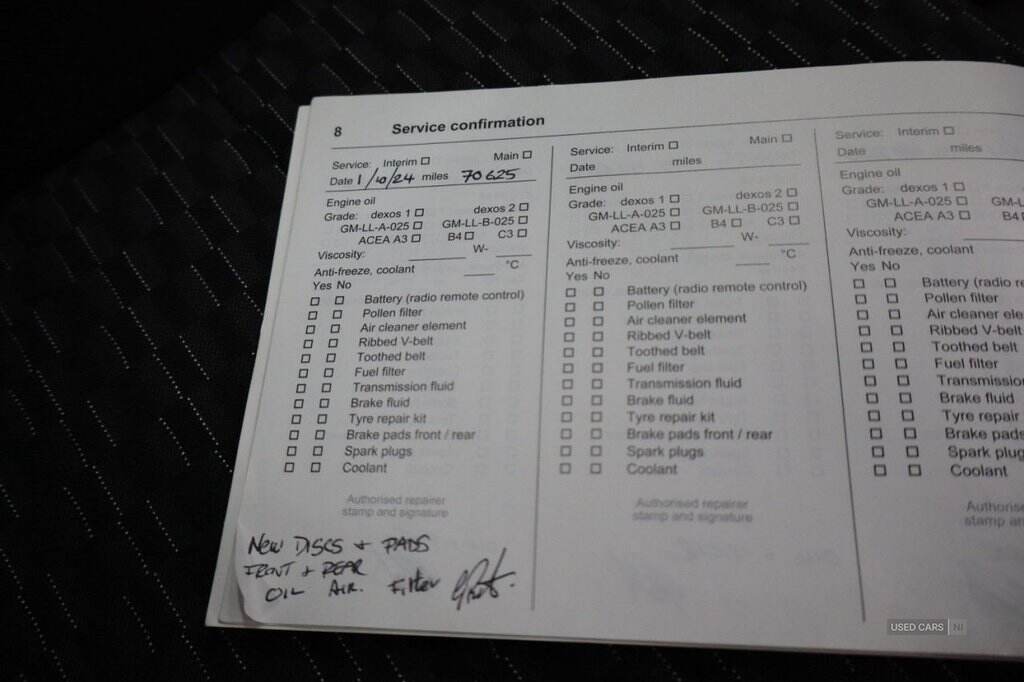 8 Service confirmation
Service: Interim ☐ Main ☐
Date 1/10/24 miles 70625
Engine oil
Grade: dexos 1 ☐ dexos 2 ☐
GM-LL-A-025 ☐ GM-LL-B-025 ☐
ACEA A3 ☐ B4 ☐ C3 ☐
Viscosity: W-
Anti-freeze, coolant °C
Yes No
☐ ☐ Battery (radio remote control)
☐ ☐ Pollen filter
☐ ☐ Air cleaner element
☐ ☐ Ribbed V-belt
☐ ☐ Toothed belt
☐ ☐ Fuel filter
☐ ☐ Transmission fluid
☐ ☐ Brake fluid
☐ ☐ Tyre repair kit
☐ ☐ Brake pads front / rear
☐ ☐ Spark plugs
☐ ☐ Coolant
Authorised repairer
stamp and signature
NEW DISCS + PADS
FRONT + REAR
OIL AIR. Filter
Service: Interim ☐ Main ☐
Date miles
Engine oil
Grade: dexos 1 ☐ dexos 2 ☐
GM-LL-A-025 ☐ GM-LL-B-025 ☐
ACEA A3 ☐ B4 ☐ C3 ☐
Viscosity: W-
Anti-freeze, coolant °C
Yes No
☐ ☐ Battery (radio remote control)
☐ ☐ Pollen filter
☐ ☐ Air cleaner element
☐ ☐ Ribbed V-belt
☐ ☐ Toothed belt
☐ ☐ Fuel filter
☐ ☐ Transmission fluid
☐ ☐ Brake fluid
☐ ☐ Tyre repair kit
☐ ☐ Brake pads front / rear
☐ ☐ Spark plugs
☐ ☐ Coolant
Authorised repairer
stamp and signature
Service: Interim ☐
Date miles
Engine oil
Grade: dexos 1 ☐
GM-LL-A-025 ☐ GM-L
ACEA A3 ☐ B4
Viscosity:
Anti-freeze, coolant
Yes No
☐ ☐ Battery (radio re
☐ ☐ Pollen filter
☐ ☐ Air cleaner ele
☐ ☐ Ribbed V-belt
☐ ☐ Toothed belt
☐ ☐ Fuel filter
☐ ☐ Transmission
☐ ☐ Brake fluid
☐ ☐ Tyre repair
☐ ☐ Brake pads
☐ ☐ Spark plug
☐ ☐ Coolant
Authorise
stamp an
USED CARS NI